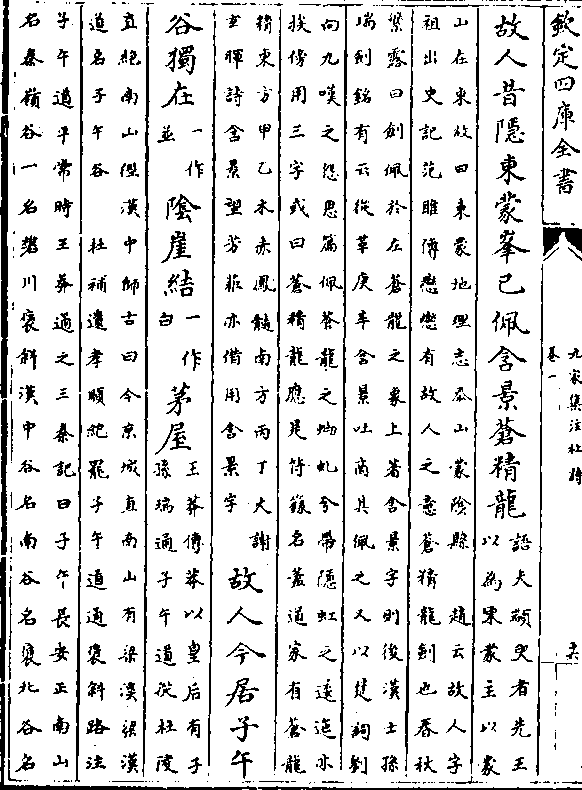 欽定四庫全書
九家集注杜詩
卷一
故人昔隱東蒙峯已佩含景蒼精龍
語夫顓臾者先王
以為東蒙主以蒙
山在東故曰東蒙地理志泰山蒙陰縣 趙云故人字
祖出史記范雎傳戀戀有故人之意蒼精龍劍也春秋
繁露曰劍佩於左蒼龍之象上著含景字則後漢士孫
瑞劍銘有云從革庚辛含景吐商具佩之又以楚詞劉
向九嘆之怨思篇佩蒼龍之蚴虬兮帶隱虹之逶迤亦
挨傍用三字或曰蒼精龍應是符籙名蓋道家有蒼龍
精東方甲乙木赤鳳髓南方丙丁火謝
玄暉詩含景望芳菲亦借用含景字
故人今居子午
谷獨在
一作
並
陰崖結
一作
白
茅屋
王莽傳莽以皇后有子
孫瑞通子午道從杜陵
直絶南山徑漢中師古曰今京城直南山有梁漢梁漢
道名子午谷 杜補遺孝順紀罷子午道通褒斜路注
子午道平常時王莽通之三秦記曰子午長安正南山
名秦嶺谷一名樊川褒斜漢中谷名南谷名褒北谷名